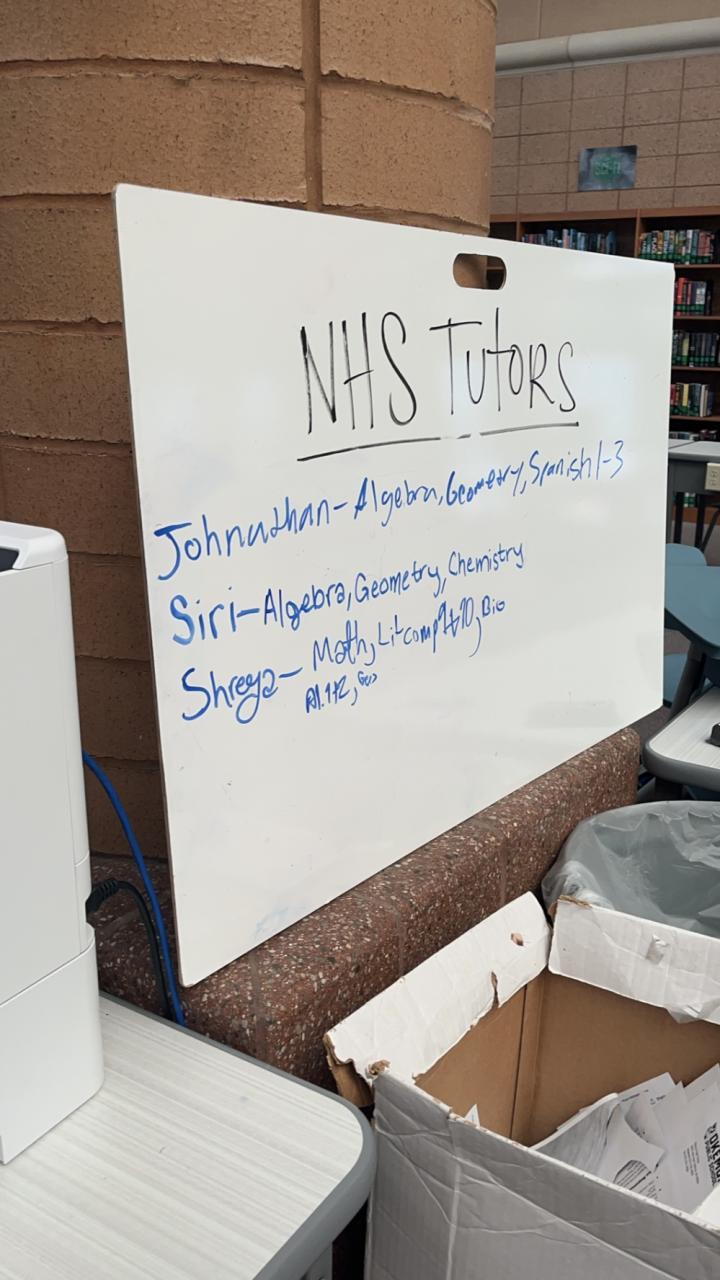 SCI-FI
NHS TUTORS
Johnathan-Algebra, Geometry, Spanish 1-3
Siri-Algebra, Geometry, Chemistry
Shreya- Math, Lit comp 9+10, Bio
Al. 1+2, Geo